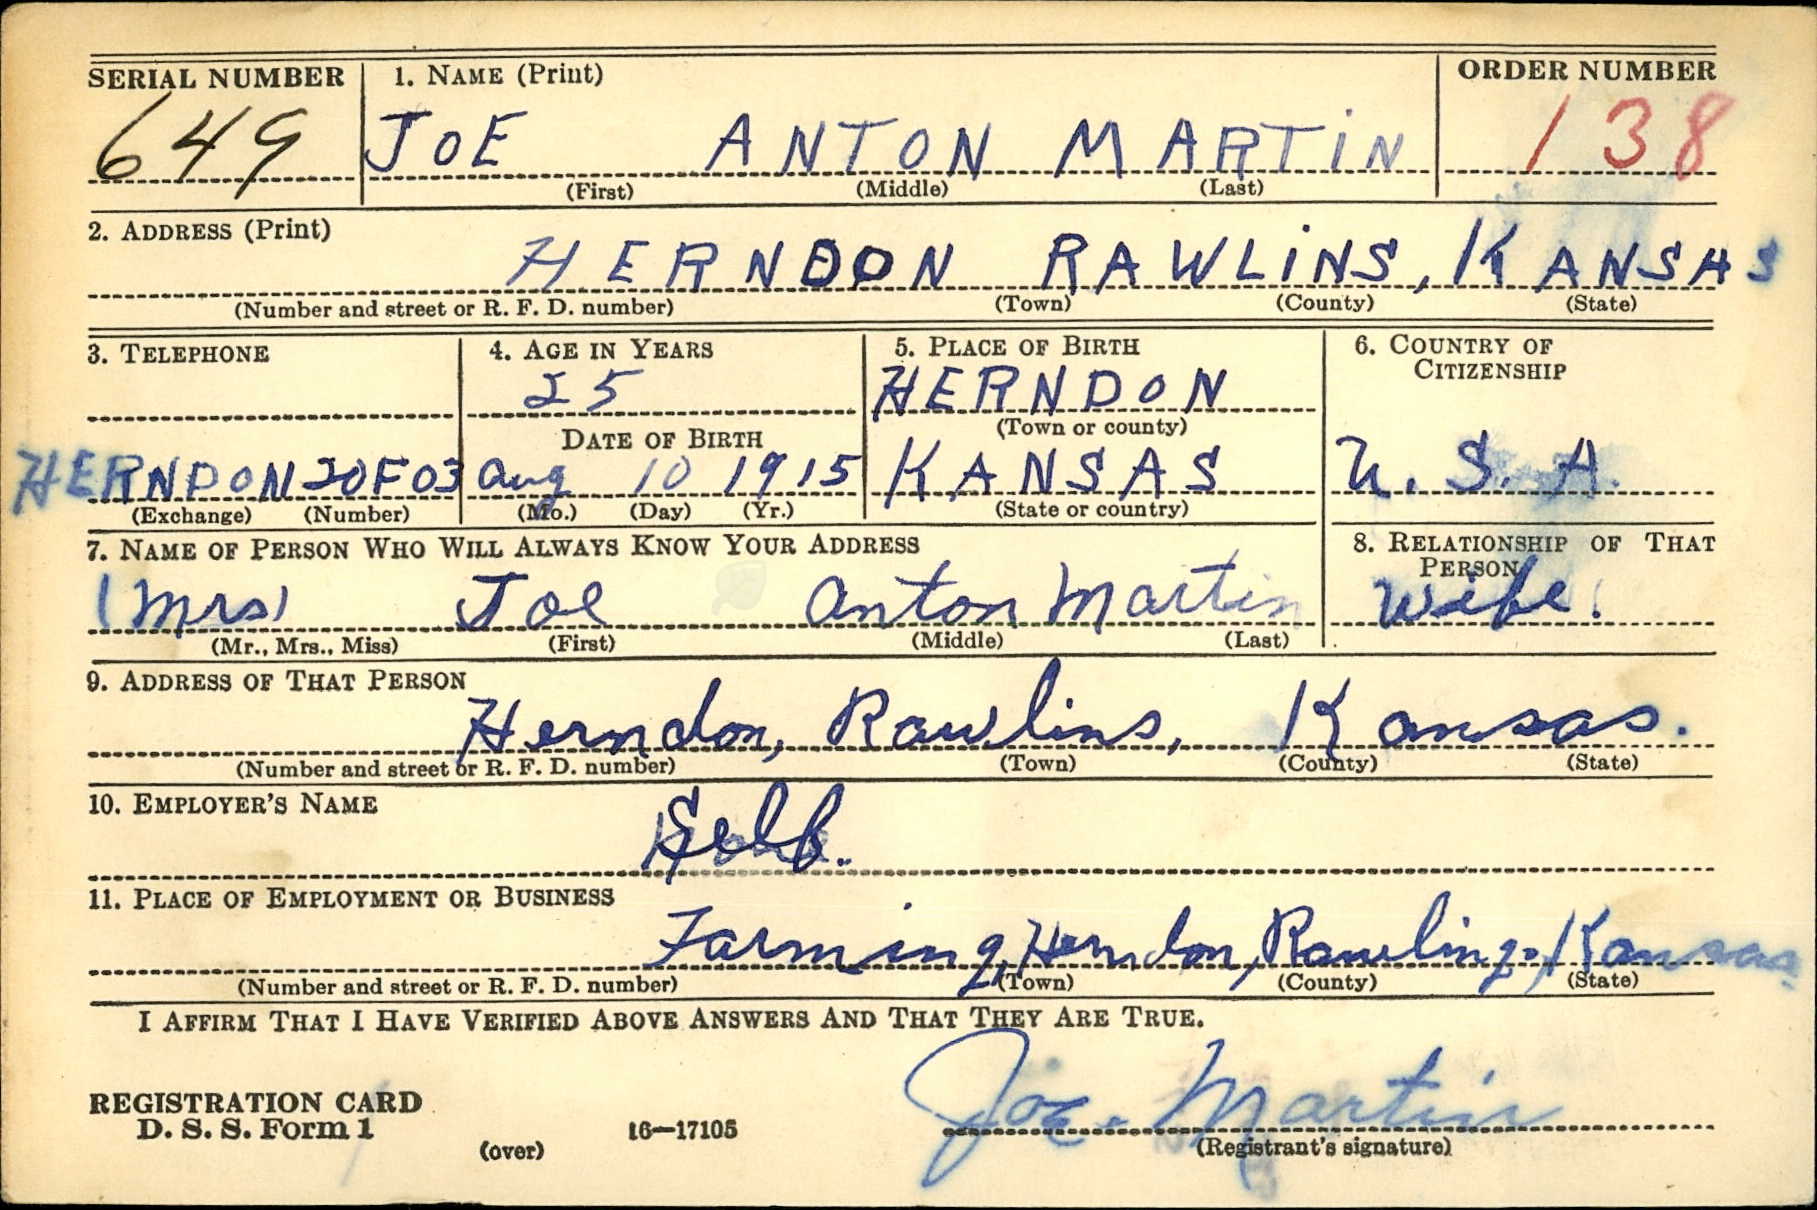 SERIAL NUMBER 1. NAME (Print) ORDER NUMBER
649 JOE ANTON MARTIN 138
(First) (Middle) (Last)
2. ADDRESS (Print)
HERNDON RAWLINS, KANSAS
(Number and street or R. F. D. number) (Town) (County) (State)
3. TELEPHONE 4. AGE IN YEARS 5. PLACE OF BIRTH 6. COUNTRY OF CITIZENSHIP
25 HERNDON
(Town or county)
DATE OF BIRTH
HERNDON 20F03 Aug 10 1915 KANSAS U. S. A.
(Exchange) (Number) (Mo.) (Day) (Yr.) (State or country)
7. NAME OF PERSON WHO WILL ALWAYS KNOW YOUR ADDRESS 8. RELATIONSHIP OF THAT PERSON
(Mrs) Joe Anton Martin Wife.
(Mr., Mrs., Miss) (First) (Middle) (Last)
9. ADDRESS OF THAT PERSON
Herndon, Rawlins, Kansas.
(Number and street or R. F. D. number) (Town) (County) (State)
10. EMPLOYER'S NAME
Self.
11. PLACE OF EMPLOYMENT OR BUSINESS
Farming, Herndon, Rawlins, Kansas
(Number and street or R. F. D. number) (Town) (County) (State)
I AFFIRM THAT I HAVE VERIFIED ABOVE ANSWERS AND THAT THEY ARE TRUE.
Joe Martin
REGISTRATION CARD
D. S. S. Form 1 (over) 16—17105 (Registrant's signature)